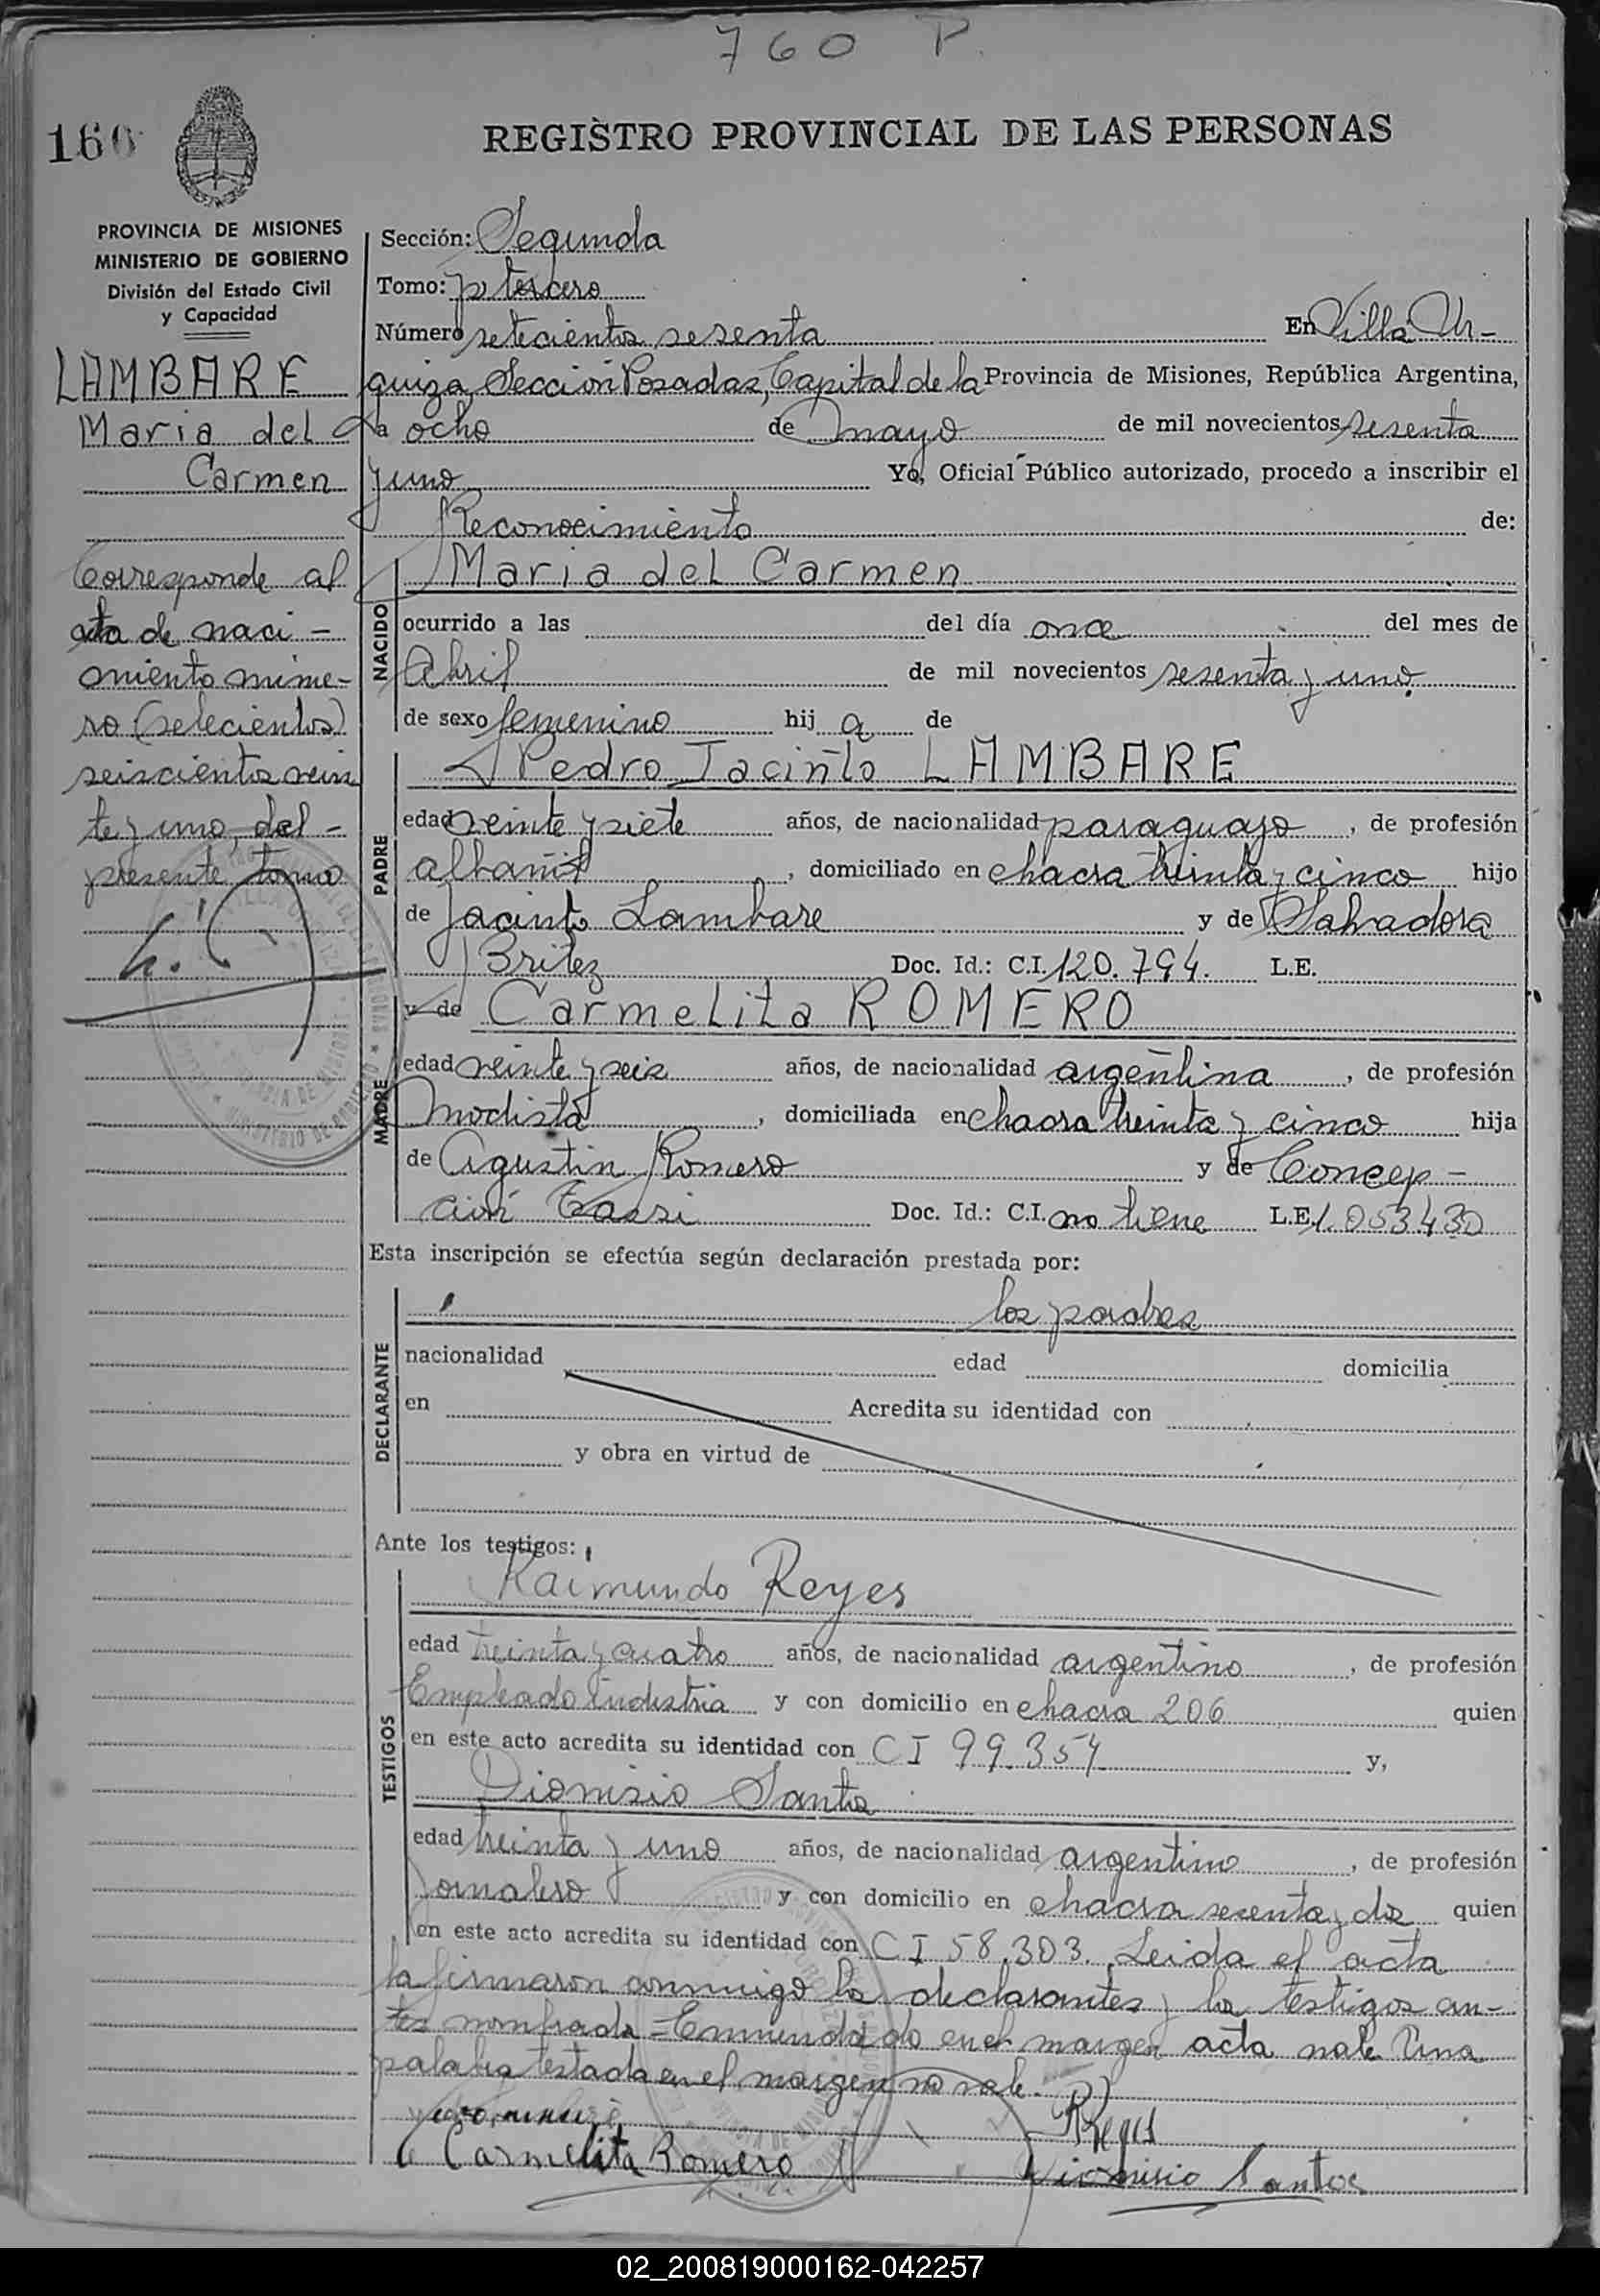 760 P.
160
REGISTRO PROVINCIAL DE LAS PERSONAS
PROVINCIA DE MISIONES
MINISTERIO DE GOBIERNO
División del Estado Civil
y Capacidad
LAMBARE
Maria del
Carmen
Corresponde al
acta de naci-
miento núme-
ro (setecientos)
seiscientos vein
te y uno, del-
presente tomo
Sección: Segunda
Tomo: tercero
Número setecientos sesenta En Villa Ur-
quiza, Sección Posadas, Capital de la Provincia de Misiones, República Argentina,
a ocho de mayo de mil novecientos sesenta
y uno Yo, Oficial Público autorizado, procedo a inscribir el
Reconocimiento de:
NACIDO
Maria del Carmen
ocurrido a las del día once del mes de
Abril de mil novecientos sesenta y uno
de sexo femenino hija de
PADRE
Pedro Jacinto LAMBARE
edad veinte y siete años, de nacionalidad paraguayo, de profesión
albañil, domiciliado en chacra treinta y cinco hijo
de Jacinto Lambare y de Salvadora
Britez Doc. Id.: C.I. 120.794. L.E.
MADRE
y de Carmelita ROMERO
edad veinte y seis años, de nacionalidad argentina, de profesión
Modista, domiciliada en chacra treinta y cinco hija
de Agustin Romero y de Concep-
ción Doc. Id.: C.I. no tiene L.E. 1.053.430
Esta inscripción se efectúa según declaración prestada por:
DECLARANTE
los padres
nacionalidad edad domicilia
en Acredita su identidad con
y obra en virtud de
Ante los testigos:
TESTIGOS
Raimundo Reyes
edad treinta y cuatro años, de nacionalidad argentino, de profesión
Empleado industria y con domicilio en chacra 206 quien
en este acto acredita su identidad con CI 99.354 y,
Dionisio Santos
edad treinta y uno años, de nacionalidad argentino, de profesión
Jornalero y con domicilio en chacra sesenta y dos quien
en este acto acredita su identidad con CI 58.303. Leida el acta
la firmaron conmigo los declarantes y los testigos an-
tes nombrados = Enmendado en el margen acta vale. Una
palabra testada en el margen no vale.
RReyes
Carmelita Romero
Dionisio Santos
02_200819000162-042257